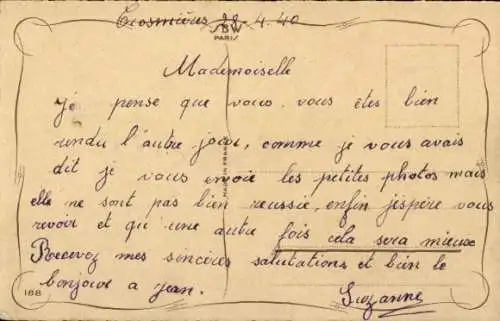 Crosmières 28-4.40
SBW
PARIS
Mademoiselle
Je pense que vous vous êtes bien
rendu l'autre jour, comme je vous avais
dit je vous envoie les petites photos mais
elle ne sont pas bien reussie, enfin j'espère vous
revoir et qu une autre fois cela sera mieux
Recevez mes sincères salutations et bien le
bonjour a jean.
Suzanne
188